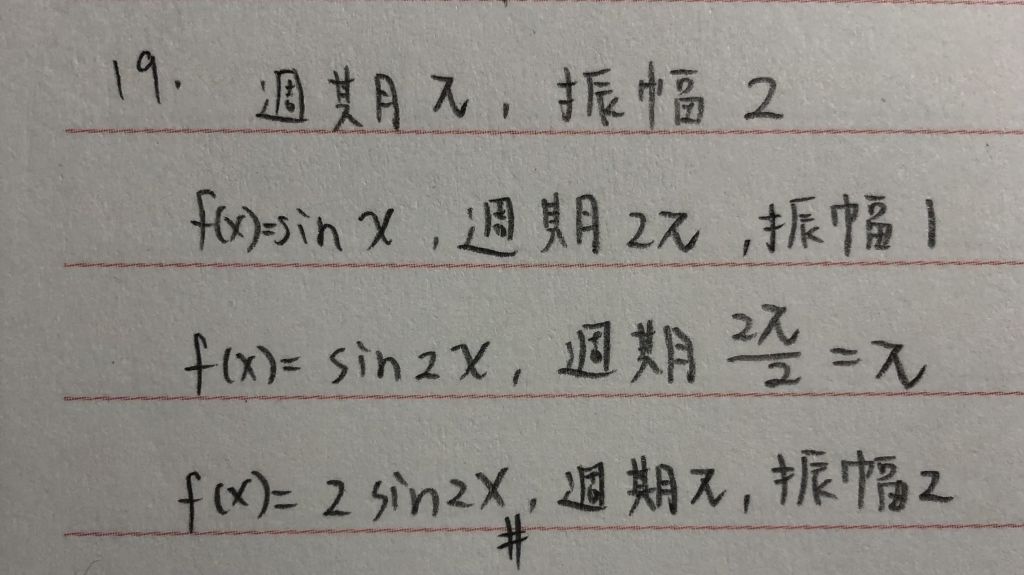 19. 週期π, 振幅2
f(x)=sin x, 週期2π, 振幅1
f(x)= sin2x, 週期 2π/2 = π
f(x)= 2 sin2x, 週期π, 振幅2
#